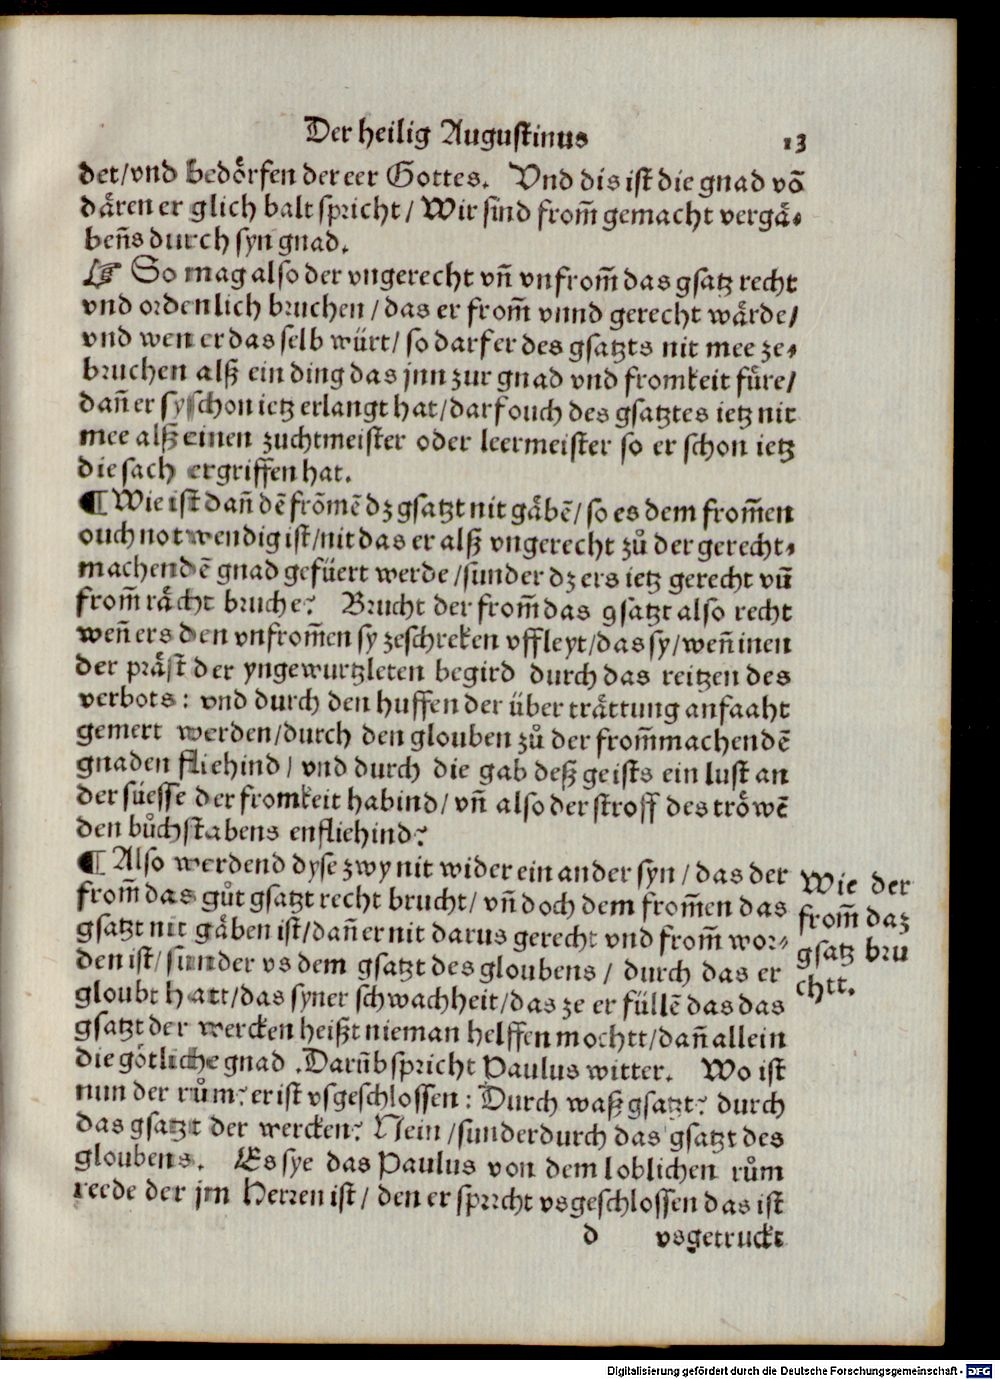 Der heilig Augustinus 13
det/vnd bedoͤrfen der eer Gottes. Vnd dis ist die gnad võ
daͤren er glich balt spricht/ Wir sind from̃ gemacht vergaͤ⸗
ben̄s durch syn gnad.
☞ So mag also der vngerecht vn̄ vnfrom̃ das gsatz recht
vnd ordenlich bruchen/das er from̃ vnnd gerecht waͤrde/
vnd wen er das selb würt/ so darf er des gsatzts nit mee ze⸗
bruchen alß ein ding das jnn zur gnad vnd fromkeit fuͤre/
dan̄ er sy schon ietz erlangt hat/darf ouch des gsatztes ietz nit
mee alß einen zuchtmeister oder leermeister so er schon ietz
die sach ergriffen hat.
¶ Wie ist dan̄ dē froͤmē dz gsatzt nit gaͤbē/ so es dem from̃en
ouch notwendig ist/nit das er alß vngerecht zuͦ der gerecht⸗
machendē gnad gefüert werde/sunder dz ers ietz gerecht vn̄
from̃ raͤcht bruche? Brucht der from̃ das gsatzt also recht
wen̄ ers den vnfrom̃en sy zeschreken vffleyt/das sy/wen̄ inen
der praͤst der yngewurtzleten begird durch das reitzen des
verbots: vnd durch den huffen der über traͤttung anfaaht
gemert werden/durch den glouben zuͦ der from̃machendē
gnaden fliehind/ vnd durch die gab deß geists ein lust an
der süesse der fromkeit habind/ vn̄ also der stroff des troͤwē
den buͦchstabens enfliehind?
¶ Also werdend dyse zwy nit wider ein ander syn/ das der
from̃ das guͦt gsatzt recht brucht/ vn̄ doch dem from̃en das
gsatzt nit gaͤben ist/dan̄ er nit darus gerecht vnd from̃ wor⸗
den ist/ sunder vs dem gsatzt des gloubens/ durch das er
gloubt hatt/das syner schwachheit/das ze er füllē das das
gsatzt der wercken heißt nieman helffen mochtt/dan̄ allein
die goͤtliche gnad. Darūb spricht Paulus witter. Wo ist
nun der ruͦm? er ist vsgeschlossen: Durch waß gsatzt? durch
das gsatzt der wercken? Nein/sunder durch das gsatzt des
gloubens. Es sye das Paulus von dem loblichen ruͦm
reede der jm Herren ist/ den er spricht vsgeschlossen das ist
d vsgetruckt
Wie der
from̃ daz
gsatz bru
chtt.
Digitalisierung gefördert durch die Deutsche Forschungsgemeinschaft - DFG